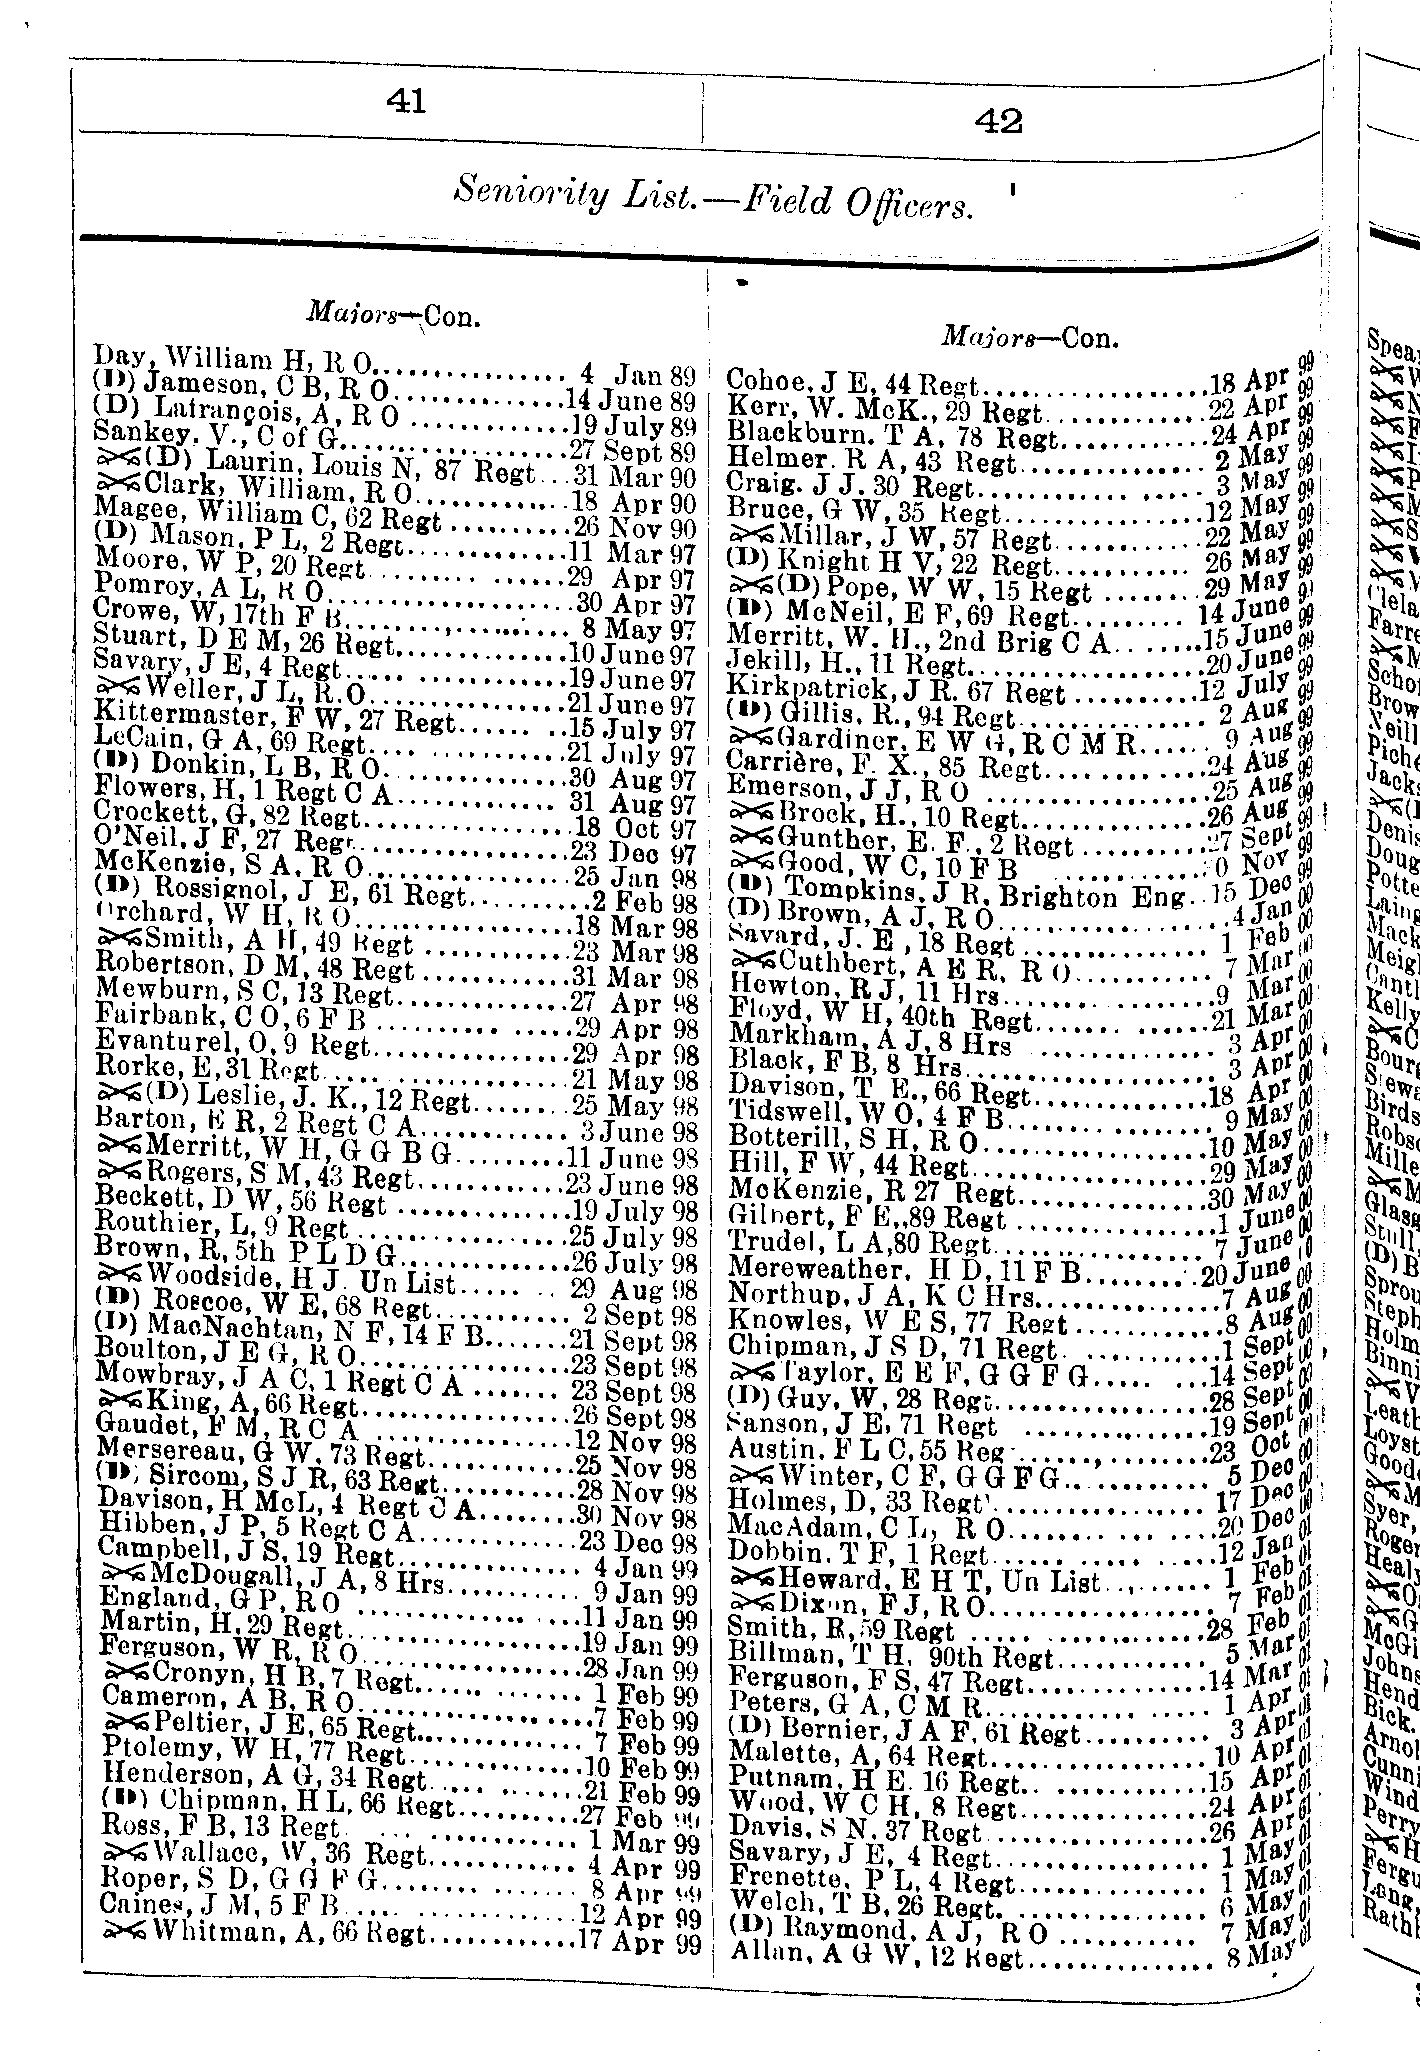 41
42
Seniority List.—Field Officers.
Majors—Con.
Day, William H, R O................ 4 Jan 89
(D) Jameson, C B, R O..............14 June 89
(D) Lafrançois, A, R O .............19 July 89
Sankey. V., C of G....................27 Sept 89
(D) Laurin, Louis N, 87 Regt...31 Mar 90
Clark, William, R O..............18 Apr 90
Magee, William C, 62 Regt ..........26 Nov 90
(D) Mason, P L, 2 Regt..............11 Mar 97
Moore, W P, 20 Regt.................29 Apr 97
Pomroy, A L, R O.....................30 Apr 97
Crowe, W, 17th F B................... 8 May 97
Stuart, D E M, 26 Regt..............10 June 97
Savary, J E, 4 Regt..................19 June 97
Weller, J L, R O.................21 June 97
Kittermaster, F W, 27 Regt..........15 July 97
LeCain, G A, 69 Regt................21 July 97
(D) Donkin, L B, R O...............30 Aug 97
Flowers, H, 1 Regt C A............. 31 Aug 97
Crockett, G, 82 Regt.................18 Oct 97
O'Neil, J F, 27 Regt.................23 Dec 97
McKenzie, S A, R O.................25 Jan 98
(D) Rossignol, J E, 61 Regt..........2 Feb 98
Orchard, W H, R O.................18 Mar 98
Smith, A H, 49 Regt ............23 Mar 98
Robertson, D M, 48 Regt............31 Mar 98
Mewburn, S C, 13 Regt..............27 Apr 98
Fairbank, C O, 6 F B ................29 Apr 98
Evanturel, O, 9 Regt.................29 Apr 98
Rorke, E, 31 Regt....................21 May 98
(D) Leslie, J. K., 12 Regt........25 May 98
Barton, E R, 2 Regt C A............ 3 June 98
Merritt, W H, G G B G.........11 June 98
Rogers, S M, 43 Regt............23 June 98
Beckett, D W, 56 Regt ..............19 July 98
Routhier, L, 9 Regt .................25 July 98
Brown, R, 5th P L D G..............26 July 98
Woodside, H J. Un List...... .. 29 Aug 98
(D) Roscoe, W E, 68 Regt............ 2 Sept 98
(D) MacNachtan, N F, 14 F B.......21 Sept 98
Boulton, J E G, R O.................23 Sept 98
Mowbray, J A C, 1 Regt C A ....... 23 Sept 98
King, A, 66 Regt.................26 Sept 98
Gaudet, F M, R C A .................12 Nov 98
Mersereau, G W. 73 Regt............25 Nov 98
(D) Sircom, S J R, 63 Regt...........28 Nov 98
Davison, H McL, 4 Regt C A........30 Nov 98
Hibben, J P, 5 Regt C A............23 Dec 98
Campbell, J S, 19 Regt............... 4 Jan 99
McDougall, J A, 8 Hrs........... 9 Jan 99
England, G P, R O .................11 Jan 99
Martin, H, 29 Regt..................19 Jan 99
Ferguson, W R, R O.................28 Jan 99
Cronyn, H B, 7 Regt............. 1 Feb 99
Cameron, A B. R O..................7 Feb 99
Peltier, J E, 65 Regt.............. 7 Feb 99
Ptolemy, W H, 77 Regt..............10 Feb 99
Henderson, A G, 34 Regt............21 Feb 99
(D) Chipman, H L, 66 Regt..........27 Feb 99
Ross, F B, 13 Regt .................. 1 Mar 99
Wallace, W, 36 Regt............. 4 Apr 99
Roper, S D, G G F G................ 8 Apr 99
Caines, J M, 5 F B...................12 Apr 99
Whitman, A, 66 Regt............17 Apr 99
Majors—Con.
Cohoe, J E, 44 Regt...................18 Apr 99
Kerr, W. McK., 29 Regt.............22 Apr 99
Blackburn. T A, 78 Regt............24 Apr 99
Helmer. R A, 43 Regt............... 2 May 99
Craig. J J. 30 Regt................. 3 May 99
Bruce, G W, 35 Regt................12 May 99
Millar, J W, 57 Regt............22 May 99
(D) Knight H V, 22 Regt.......... 26 May 99
(D) Pope, W W, 15 Regt ........29 May 99
(D) McNeil, E F, 69 Regt.......... 14 June 99
Merritt, W. H., 2nd Brig C A.......15 June 99
Jekill, H., 11 Regt..................20 June 99
Kirkpatrick, J R. 67 Regt ..........12 July 99
(D) Gillis, R., 94 Regt.............. 2 Aug 99
Gardiner, E W G, R C M R...... 9 Aug 99
Carrière, F. X., 85 Regt.............24 Aug 99
Emerson, J J, R O ..................25 Aug 99
Brock, H., 10 Regt...............26 Aug 99
Gunther, E. F., 2 Regt ..........27 Sept 99
Good, W C, 10 F B ............. Nov 99
(D) Tompkins, J R, Brighton Eng..15 Dec 99
(D) Brown, A J, R O.................4 Jan 00
Savard, J. E, 18 Regt ............... 1 Feb 00
Cuthbert, A E R, R O........... 7 Mar 00
Hewton, R J, 11 Hrs................9 Mar 00
Floyd, W H, 40th Regt.............21 Mar 00
Markham, A J, 8 Hrs .............. 3 Apr 00
Black, F B, 8 Hrs.................... 3 Apr 00
Davison, T E., 66 Regt..............18 Apr 00
Tidswell, W O, 4 F B................ 9 May 00
Botterill, S H, R O..................10 May 00
Hill, F W, 44 Regt...................29 May 00
McKenzie, R 27 Regt...............30 May 00
Gilbert, F E,.89 Regt ................1 June 00
Trudel, L A, 80 Regt................. 7 June 00
Mereweather, H D, 11 F B..........20 June 00
Northup, J A, K C Hrs..............7 Aug 00
Knowles, W E S, 77 Regt............8 Aug 00
Chipman, J S D, 71 Regt. ...........1 Sept 00
Taylor, E E F, G G F G..... ...14 Sept 00
(D) Guy, W, 28 Regt................28 Sept 00
Sanson, J E, 71 Regt ............19 Sept 00
Austin, F L C, 55 Reg .............23 Oct 00
Winter, C F, G G F G............ 5 Dec 00
Holmes, D, 33 Regt................. 17 Dec 00
MacAdam, C L, R O................20 Dec 00
Dobbin. T F, 1 Regt................12 Jan 01
Heward, E H T, Un List.......... 1 Feb 01
Dixon, F J, R O.................. 7 Feb 01
Smith, R, 59 Regt ..................28 Feb 01
Billman, T H. 90th Regt............ 5 Mar 01
Ferguson, F S, 47 Regt..............14 Mar 01
Peters, G A, C M R................. 1 Apr 01
(D) Bernier, J A F, 61 Regt.......... 3 Apr 01
Malette, A, 64 Regt.................10 Apr 01
Putnam, H E. 16 Regt..............15 Apr 01
Wood, W C H, 8 Regt...............24 Apr 01
Davis, S N. 37 Regt..................26 Apr 01
Savary, J E, 4 Regt.................. 1 May 01
Frenette, P L, 4 Regt................ 1 May 01
Welch, T B, 26 Regt................ 6 May 01
(D) Raymond, A J, R O ........... 7 May 01
Allan, A G W, 12 Regt............... 8 May 01